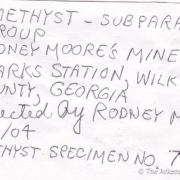 METHYST - SUBPARA
GROUP
DNEY MOORE'S MINE
ARKS STATION, WILK
UNTY, GEORGIA
ected by RODNEY M
/04
THYST SPECIMEN NO. 7
© The Arkans